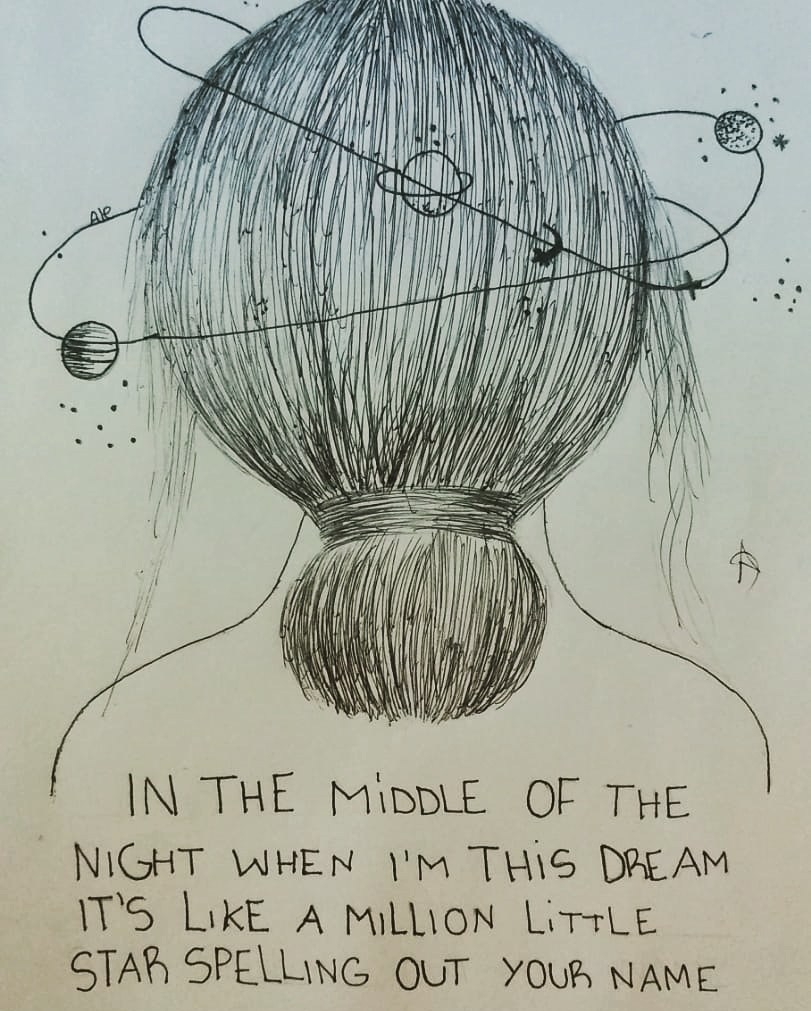 Ale
IN THE MiDDLE OF THE
NiGHT WHEN I'M THiS DREAM
IT'S LiKE A MILLION LiTTLE
STAR SPELLING OUT YOUR NAME